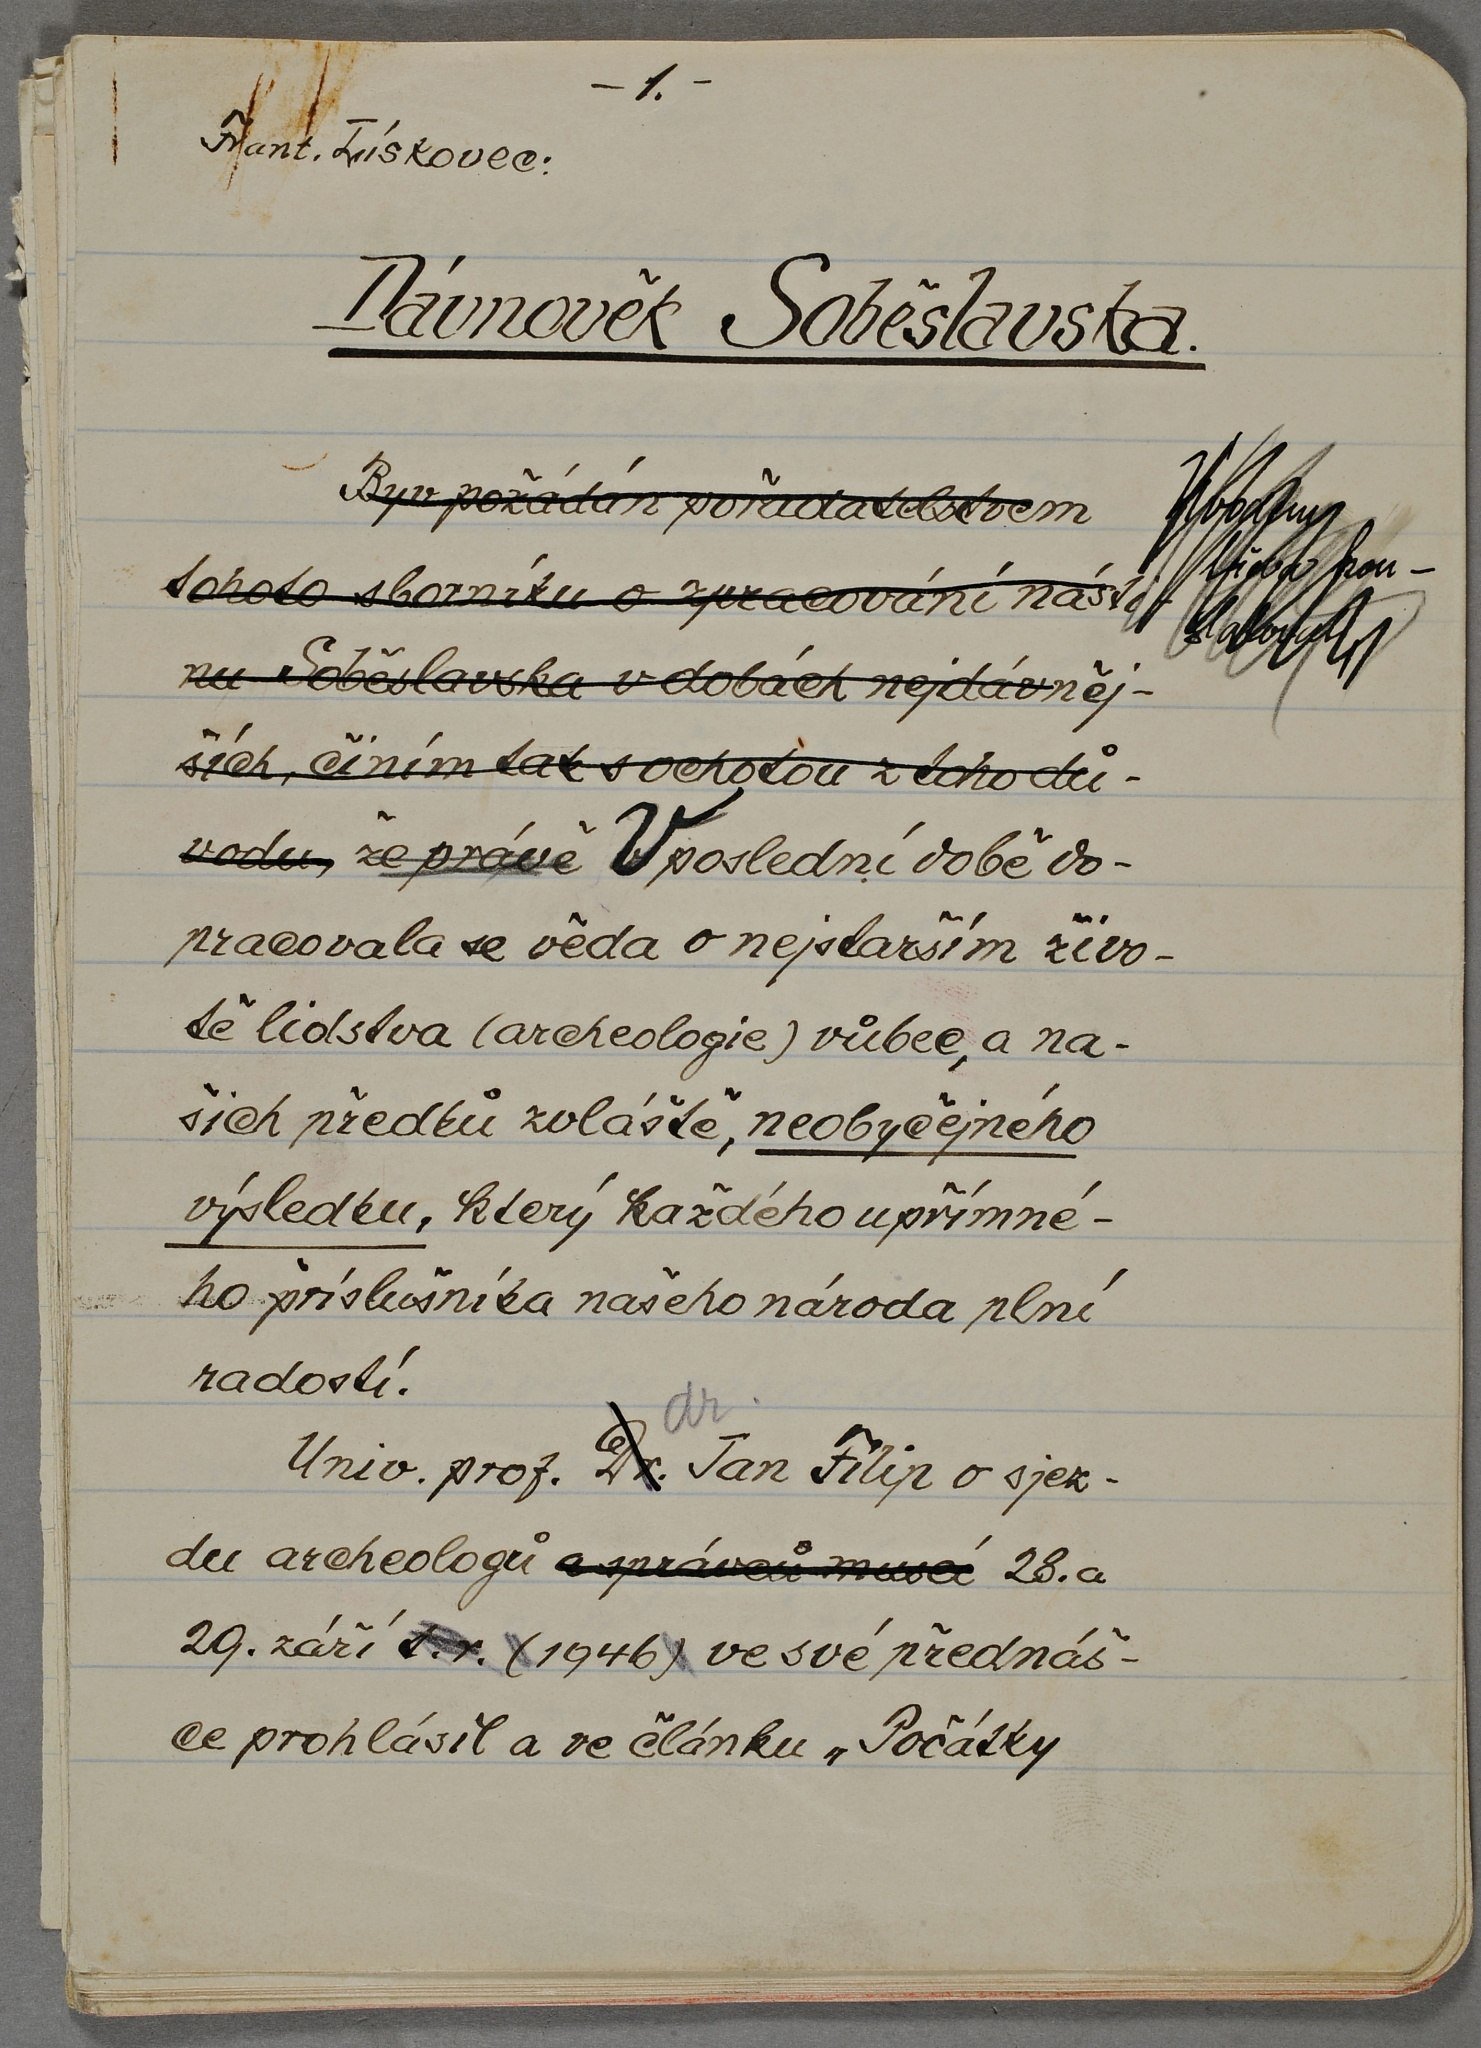 – 1. –
Frant. Lískovec:
Dávnověk Soběslavska.
Byv požádán pořadatelstvem
tohoto sborníku o zpracování násti-
nu Soběslavska v dobách nejdávněj-
ších, činím tak s ochotou z toho dů-
vodu, že právě V poslední době do-
pracovala se věda o nejstarším živo-
tě lidstva (archeologie) vůbec, a na-
šich předků zvláště, neobyčejného
výsledku, který každého upřímné-
ho příslušníka našeho národa plní
radostí.
dr.
Univ. prof. Dr. Jan Filip o sjez-
du archeologů a správců museí 28. a
29. září t. r. (1946) ve své přednáš-
ce prohlásil a ve článku „Počátky